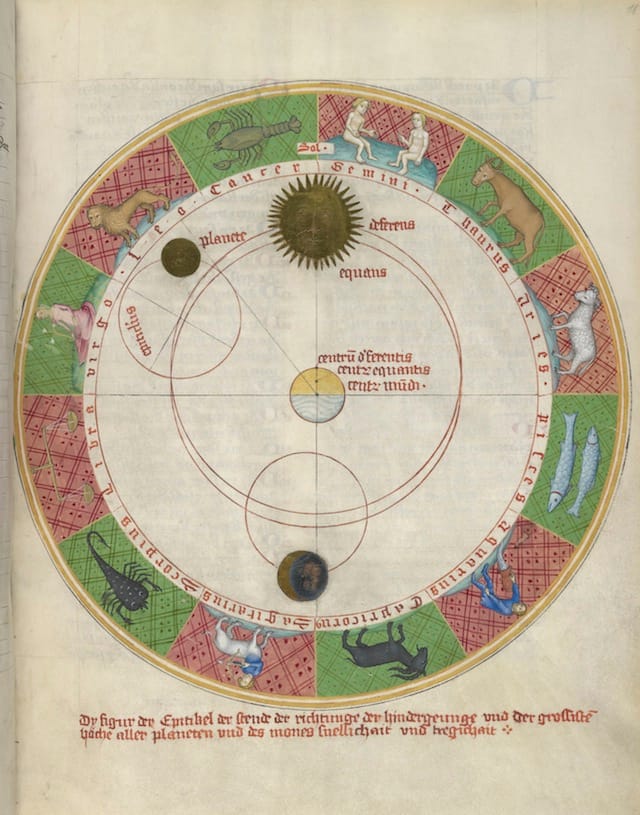 Sol ·
Gemini ·
Thaurus
Aries ·
Pisces
Aquarius
Capricorn
Sagitarius
Scorpius
Libra
virgo ·
Leo ·
Cancer
planete
deferens
equans
epiciclus
centrū d'ferentis
centꝛ equantis
centꝛ mūdi ·
Dy figur der Epitikel der stende der richtunge der hindergeunge vnd der grossistē
höche aller planeten vnd des mones snellichait vnd tregichait